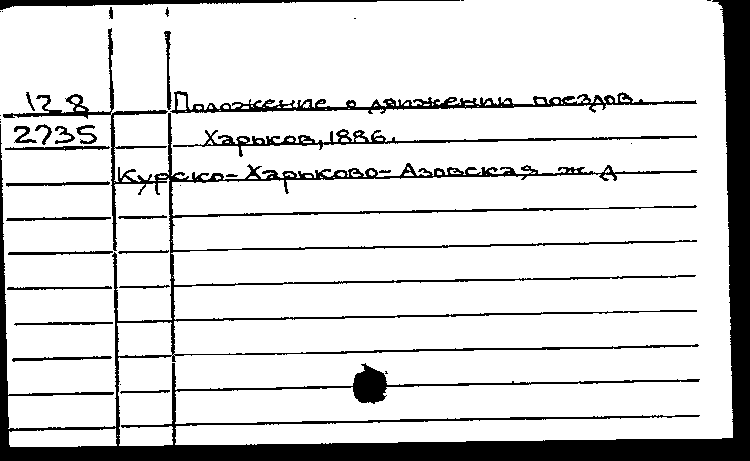 128 Положение о движении поездов.
2735 Харьков, 1886.
Курско-Харьково-Азовская ж. д